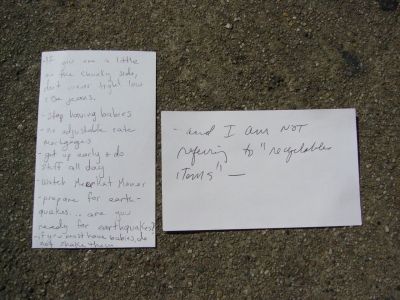 -If you are a little
on the chunky side,
don't wear tight low
rise jeans.
-stop having babies
-no adjustable rate
mortgages
-get up early & do
stuff all day
-watch Meerkat Manor
-prepare for earth-
quakes... are you
ready for earthquakes?
-if you must have babies, do
not shake them
-and I am NOT
refering to "recyclables
items" —